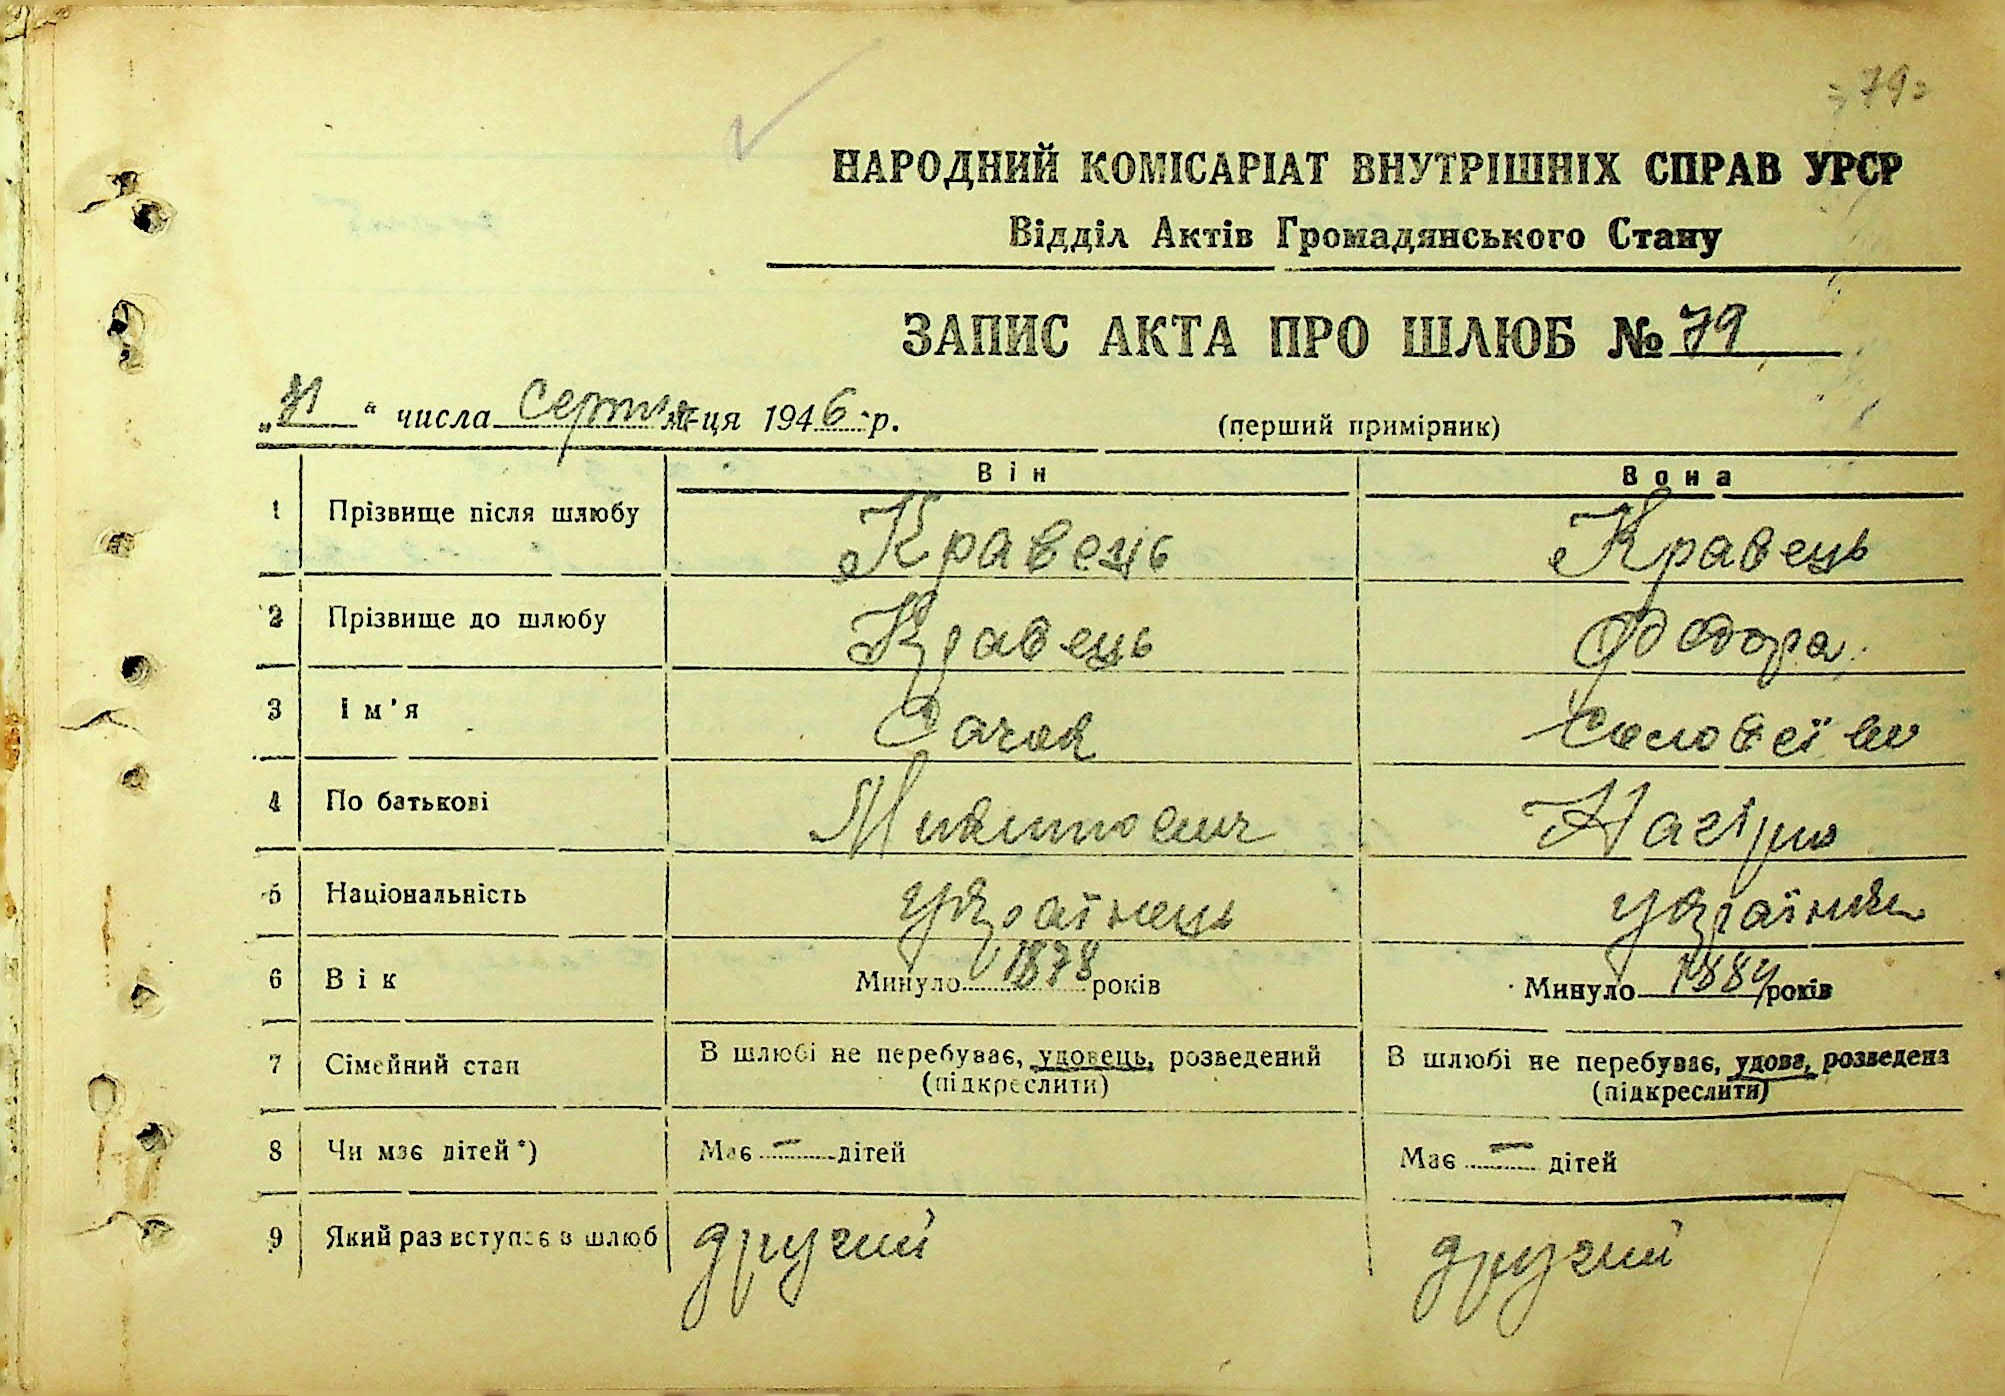 79
НАРОДНИЙ КОМІСАРІАТ ВНУТРІШНІХ СПРАВ УРСР
Відділ Актів Громадянського Стану
ЗАПИС АКТА ПРО ШЛЮБ № 79
" " числа Серпня м-ця 1946 р. (перший примірник)
Він Вона
1 Прізвище після шлюбу Кравець Кравець
2 Прізвище до шлюбу Кравець Федора
3 Ім'я
4 По батькові Микитович
5 Національність українець українка
6 Вік Минуло 1878 років Минуло 1884 років
7 Сімейний стан В шлюбі не перебуває, удовець, розведений (підкреслити) В шлюбі не перебуває, удова, розведена (підкреслити)
8 Чи має дітей *) Має — дітей Має — дітей
9 Який раз вступає в шлюб другий другий